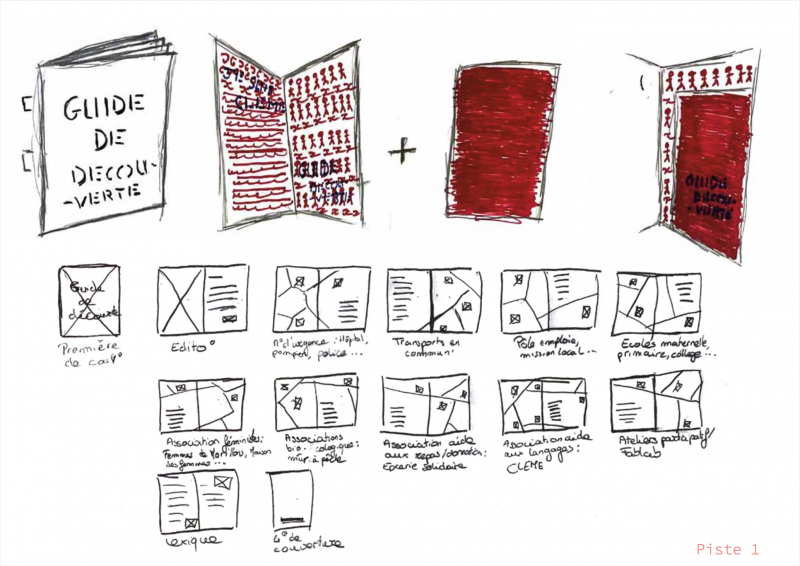 GUIDE
DE
DECOU-
-VERTE
GUIDE
DECOU-
-VERTE
+
GUIDE
DECOU-
-VERTE
Guide
de
découverte
Première
de couv°
Edito°
N° d'urgence : Hôpital,
pompiers, police ...
Transports en
commun
Pôle emploie,
mission local ...
Ecoles maternelle,
primaire, collège ...
Association féministes:
Femmes de
Maison
des femmes ...
Associations
mur à pêche
Association aide
aux repas/donation:
Epicerie Solidaire
Association aide
aux langages:
CLEME
Ateliers participatif/
Fablab
Lexique
4° de
couverture
Piste 1